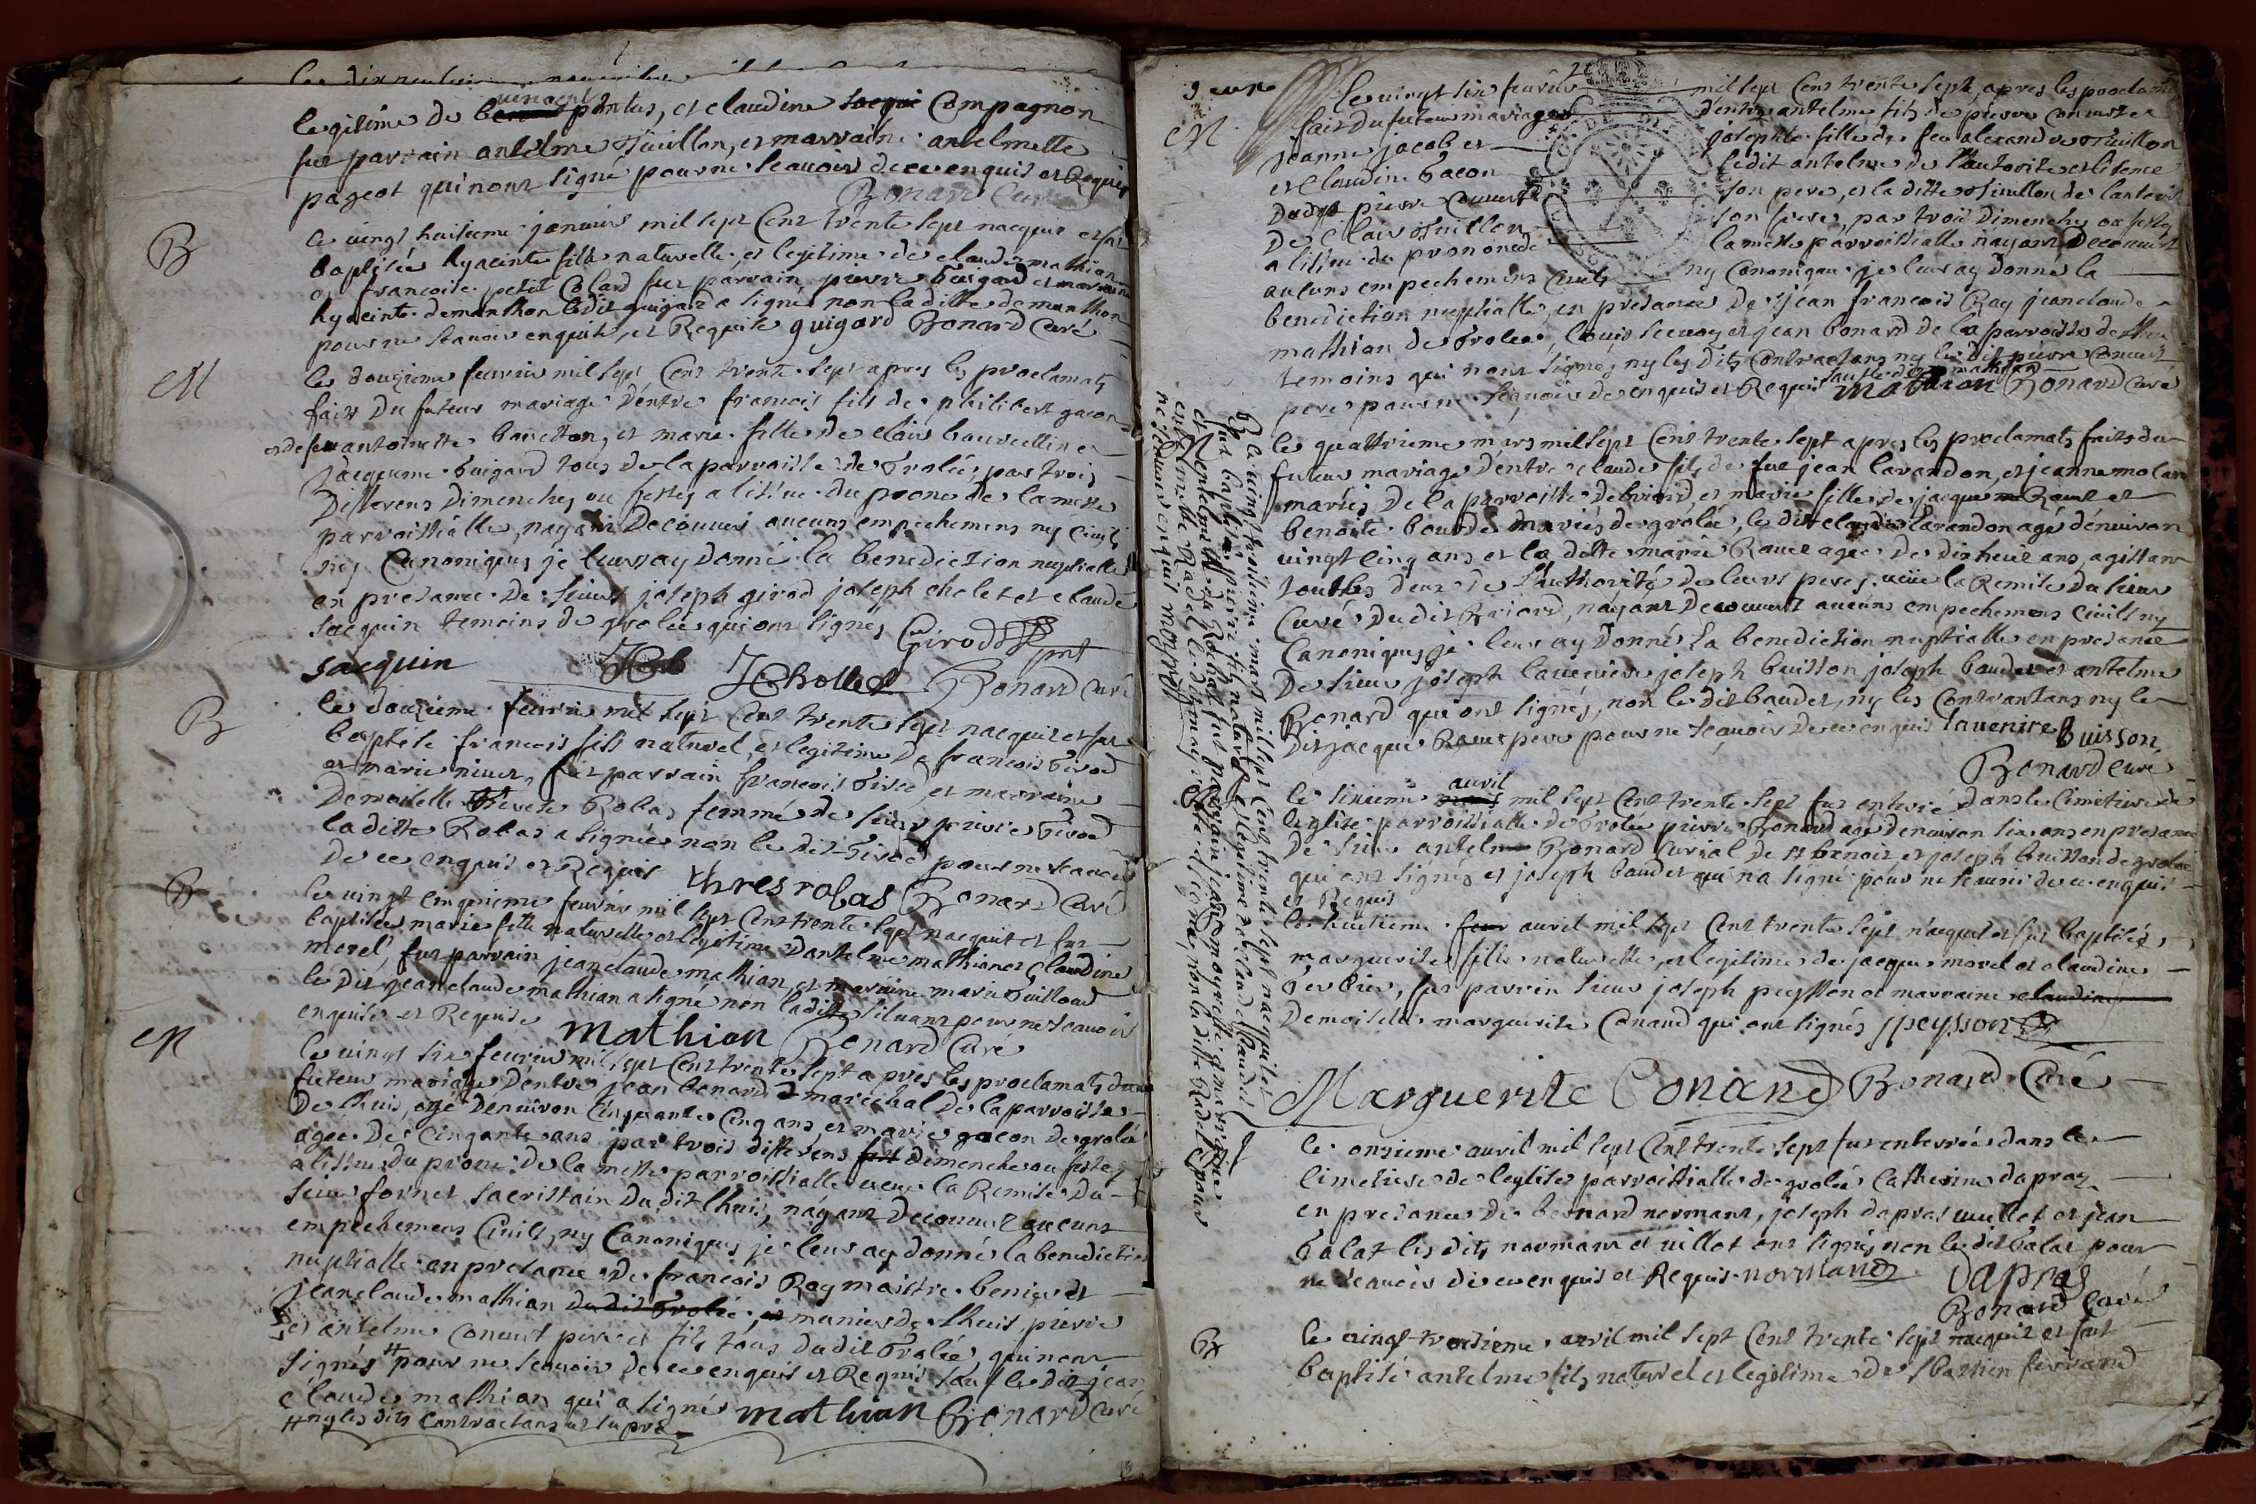 legitime de vincent pontus, et claudine Compagnon
fut parrain antelme Tuillon, et marraine antelmette
pageot qui nont signé pour ne scauoir de ce enquis et Requis
Bonard Curé
B
le vingt huitieme januier mil sept Cent trente sept nacquit et fut
baptisée hyacinte fille naturelle et legitime de claude mathian
et francoise petit Colard fut parrain pierre Guigard et marraine
hyacinte demanthon ledit guigard a signé non laditte demanthon
pour ne scauoir enquise, et Requise guigard Bonard Curé
M
le douzieme feurier mil sept Cent trente sept apres les proclamats
faits du futeur mariage d'entre francois fils de philibert gacon
et de feu antoinette banetton, et marie fille de clair bauuellin et
Jacqueme Guigard tous de la parroisse de Grolée, par trois
Differens Dimenches ou festes a lissue du prone de la messe
parroissialle, nayant Decouuert aucuns empechemens ny Ciuils
ny Canoniques je leurs ay Donné la benediction nuptialle
en presance de sieurs joseph girod joseph cholet et claude
Jacquin temoins de grolée qui ont signés Girod
Jacquin JCholles Bonard Curé
B
le douzieme feurier mil sept Cent trente sept nacquit et fut
baptisé francois fils naturel, et legitime de francois Girod
et marie niuet, fut parrain francois Girod, et marraine
Demoiselle Therese Robas femme de sieur pierre Girod
laditte Robas a signée non le dit Girod pour ne scauoir
de ce enquis et Requis threse robas Bonard Curé
B
le vingt cinquieme feurier mil sept Cent trente sept nacquit et fut
baptisée marie fille naturelle et legitime d'antelme mathian et claudine
morel, fut parrain jean claude mathian, et marraine marie Guilloud
le dit jean claude mathian a signé non laditte Guilloud pour ne scauoir
enquise et Requise mathian Bonard Curé
M
le vingt six feurier mil sept Cent trente sept apres les proclamats du
futeur mariage d'entre jean bonard marechal de la parroisse
de lhuis, agé d'enuiron Cinquante Cinq ans et marie gacon de grolée
agée de Cinquante ans par trois differens dimenches ou festes
a lissue du prone de la messe parroissialle ueue la Remise du
sieur fornet sacristain du dit lhuis, nayant Decouuert aucuns
empechemens Ciuils, ny Canoniques je leurs ay donné la benediction
nuptialle en presance de francois Ray maistre
jean claude mathian du dit Grolée munier de lhuis, pierre
et antelme Conuert pere et fils tous du dit Grolée qui nont
signés # pour ne scauoir de ce enquis et Requis sauf le dit jean
claude mathian qui a signé mathian Bonard Curé
# ny les dits Contractans
M
le vingt six feurier mil sept Cent trente sept, apres les proclamats
fait du futeur mariage d'entre antelme fils de pierre Conuert et
jeanne jacob et josephte fille de feu alexandre Tuillon
et Claudine Gacon ledit antelme de l'autorité et licence
dudit pierre Conuert son pere, et la ditte Tuillon de l'autorité
de Clair Tuillon son frere, par trois Dimenches ou festes
a lissue du prone de la messe parroissialle nayant Decouuert
aucuns empechemens Ciuils ny Canoniques je leurs ay donné la
benediction nuptialle, en presance de jean francois Ray jean claude
mathian de Grolée, louis et jean bonard de la parroisse de lhuis
temoins qui nont signés, ny les dits Contractans ny le dit pierre Conuert
pere pour ne scauoir de ce enquis et Requis sauf le dit mathian mathian Bonard Curé
le quattrieme mars mil sept Cent trente sept apres les proclamats faits du
futeur mariage d'entre claude fils de feu jean larandon, et jeanne molard
mariés de la parroisse de briord, et marie fille de jacque Raume et
benoite boudet mariés de grolée, le dit claude larandon agé d'enuiron
vingt Cinq ans et la ditte marie Raume agée de dixhuit ans, agissans
touts deux de l'authorité de leurs peres, ueue la Remise du sieur
Curé du dit Briord, nayant Decouuert aucuns empechemens Ciuils ny
Canoniques je leurs ay Donné la benediction nuptialle en presance
de sieur joseph lauenire joseph buisson joseph baudet et antelme
Bonard qui ont signés, non le dit baudet, ny les Contractans ny le
dit jacque Raume pere pour ne scauoir de ce enquis lauenire Buisson
Bonard Curé
le sixieme auril mil sept Cent trente sept fut enterré dans le Cimetiere de
leglise parroissialle de Grolée pierre Bonard agé denuiron six ans en presance
de sieur antelme Bonard Curial de st benoit, et joseph buisson de grolée
qui ont signés et joseph baudet qui na signé pour ne scauoir de ce enquis
et Requis
le huitieme auril mil sept Cent trente sept nacquit et fut baptisée
marguerite fille naturelle, et legitime de jacque morel et claudine
Gerbier, fut parrain sieur joseph peysson et marraine
Demoiselle marguerite Conand qui ont signés Jpeysson
Marguerite Conand Bonard Curé
le onzieme auril mil sept Cent trente sept fut enterrée dans le
Cimetiere de leglise parroissialle de grolée Catherine dapras
en presance de bernard normant, joseph dapras uuillot et jean
Galat les dits normant et uillot ont signés non le dit Galat pour
ne scauoir de ce enquis et Requis normand dapras
Bonard Curé
B
le vingt troisieme auril mil sept Cent trente sept nacquit et fut
baptisé antelme fils naturel et legitime de sbastien ferrand
B le vingt troisieme mars mil sept Cent trente sept nacquit et
fut baptisé pierre fils naturel et legitime de claude
et antelmette du Rochat fut parrain jean mogrette et marraine
ne scauoir enquis mogrette